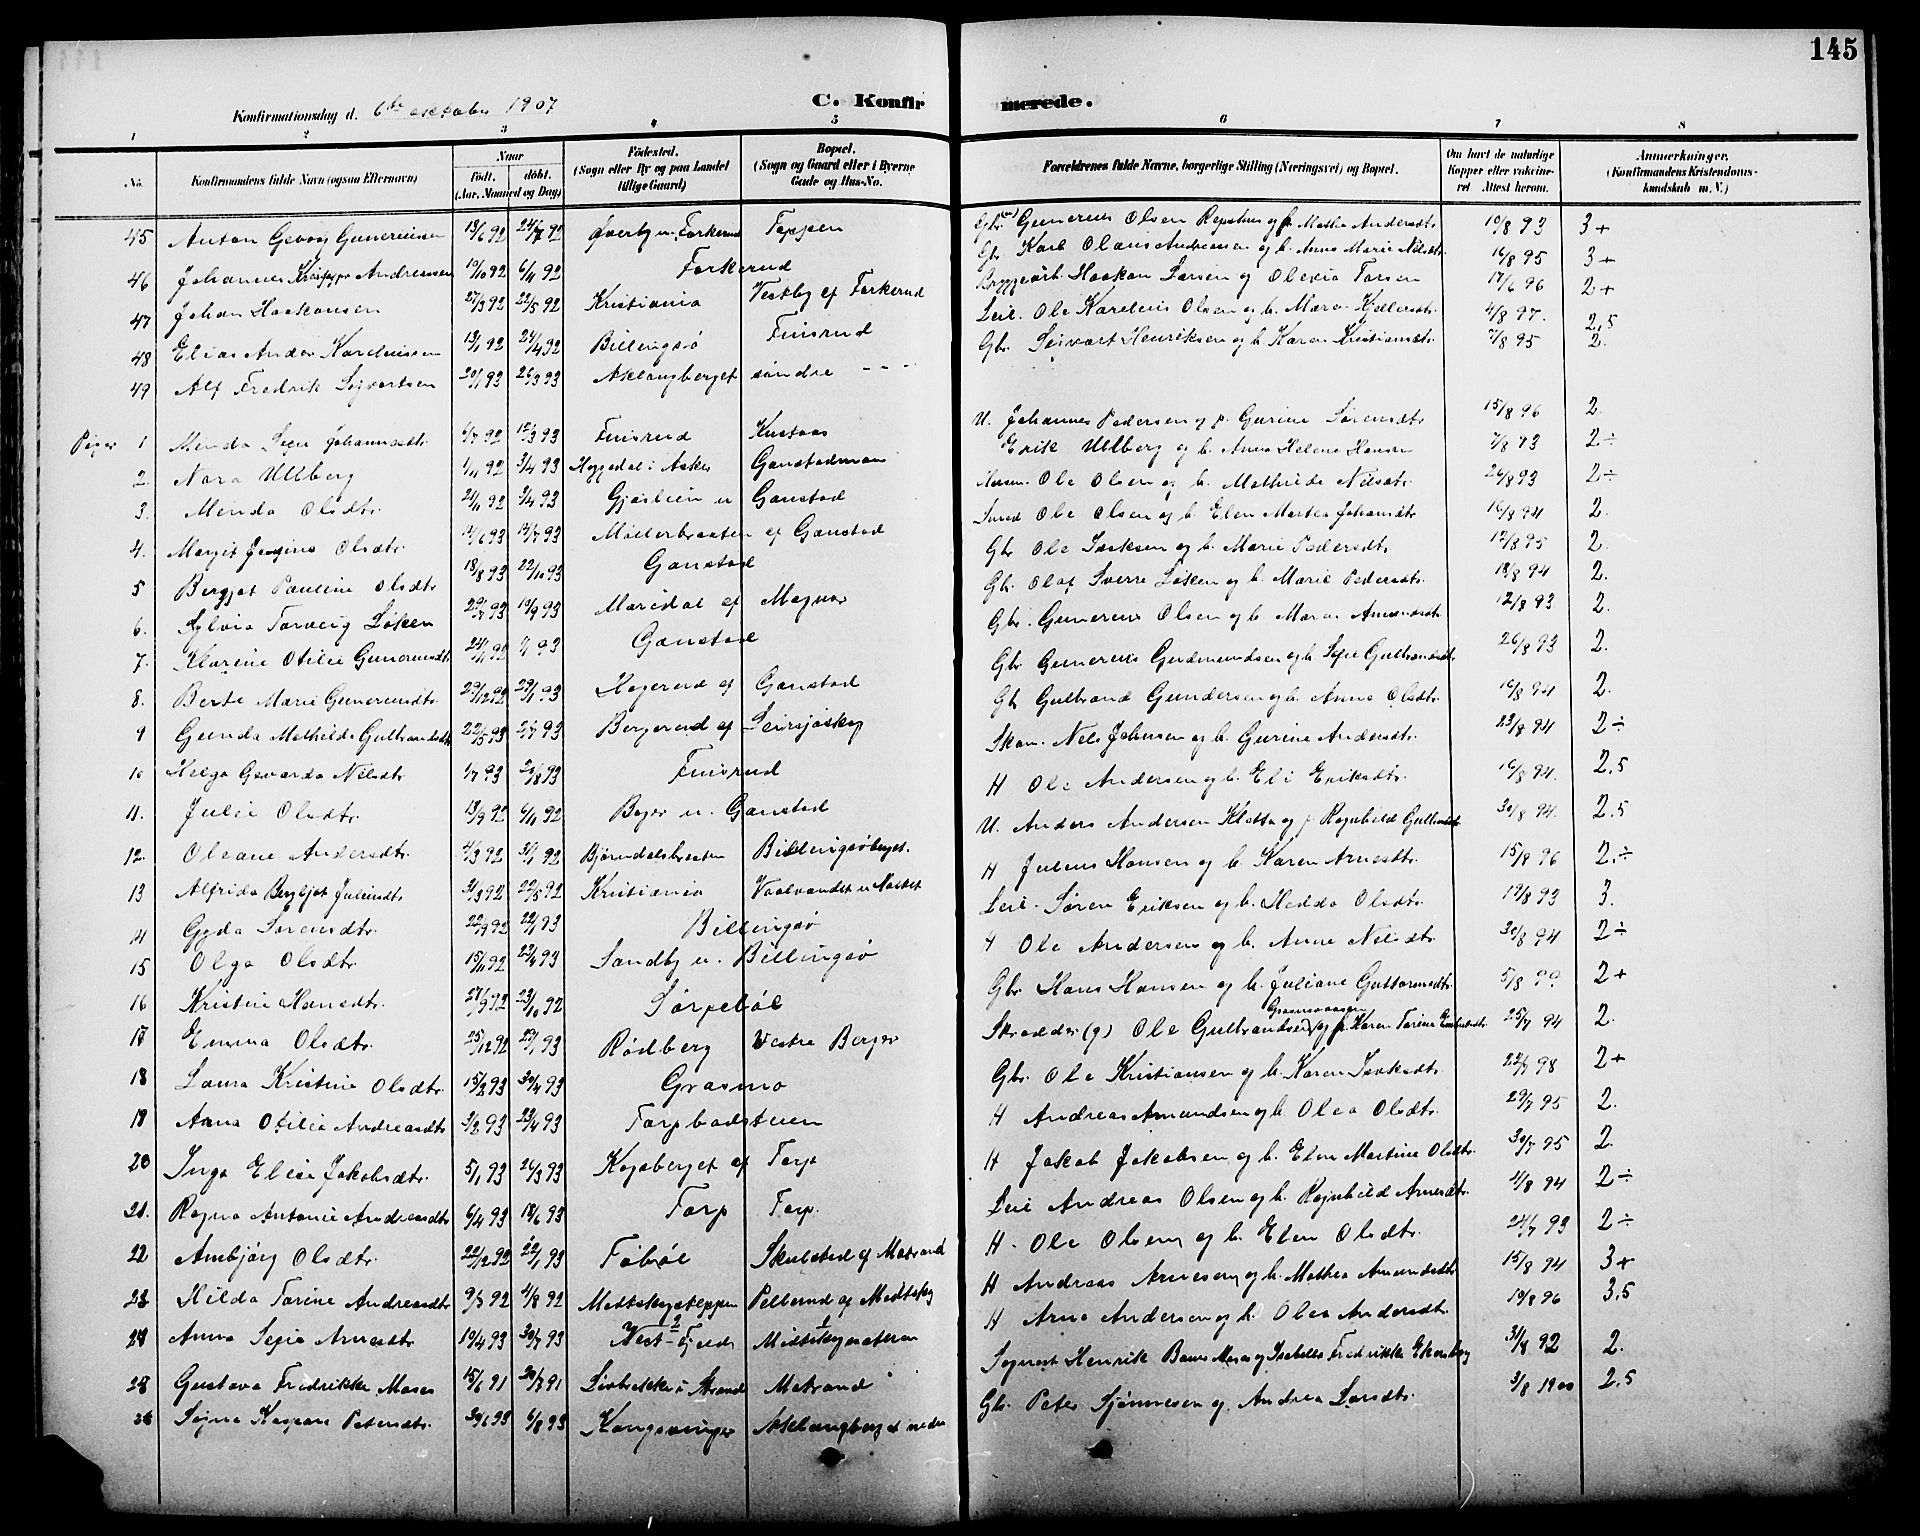 145
Konfirmationsdag d. 6te oktober 1907 C. Konfirmerede.
1 2 3 4 5 6 7 8
No.
Konfirmandens fulde Navn (ogsaa Efternavn)
Naar født. døbt. (Aar, Maaned og Dag)
Fødested. (Sogn eller By og paa Landet tillige Gaard)
Bopæl. (Sogn og Gaard eller i Byerne Gade og Hus-No.
Forældrenes fulde Navne, borgerlige Stilling (Næringsvei) og Bopæl.
Om havt de naturlige Kopper eller vaccineret. Attest herom.
Anmærkninger. (Konfirmandens Kristendomskundskab m. V.)
45 Anton Georg Gunerius­sen 13/6 92 24/7 92 Øverby u. Forkerud Toppen Gbr. Gunerius Olsen og h. Mathea Andersdtr. 10/8 93 3+
46 Johannes Andreassen 19/10 92 6/11 92 Forkerud Gbr. Karl Olaus Andreassen og h. Anne Marie Nilsdtr. 16/8 95 3+
47 Johan Haakonsen 27/3 92 22/5 92 Kristiania Vestby af Forkerud Bryggearb. Haakon Larsen og Olevia Larsen 17/6 96 2+
48 Elias Ander Kareliussen 13/1 92 24/4 92 Billingsø Finsrud Leil. Ole Karelius Olsen og h. Maren Kjellsdtr. 4/8 97. 2,5
49 Alf Fredrik Seivertsen 20/1 93 26/3 93 Aklangberget søndre Gbr. Seivart Henriksen og h. Karen Kristiansdtr. 7/8 95 2.
Piger 1 Minda Johannsdtr. 6/7 92 12/3 93 Finsrud U. Johannes Pedersen og p. Gurine Sørensdtr. 15/8 96 2.
2. Nora Ullberg 1/11 92 3/4 93 i Asker Erik Ullberg og h. Anne Helene Hansen 7/8 93 2÷
3. Minda Olsdtr. 21/11 92 3/4 93 Gjøslien u Ganstad Ole Olsen og h. Mathilde Nilsdtr. 26/8 93 2÷
4. Margit Olsdtr. 14/6 93 Møllerbraaten af Ganstad Smed Ole Olsen og h. Elen Martea Johansdtr 16/8 94 2.
5 Bergjot Pauline Olsdtr 18/8 93 22/10 93 Ganstad Gbr Ole Isaksen og h. Marie Pedersdtr 12/8 95 2.
6. Sylvia Løken 29/7 93 19/9 93 Mariedal af Magnor Gbr. Olaf Sverre Løken og h. Marie Pedersdtr. 18/8 94 2.
7. Klarine Otilie Guneriusdtr. 24/11 92 93 Ganstad Gbr. Gunerius Olsen og h. Maren 12/8 93 2.
8. Berte Marie Guneriusdtr. 29/12 92 29/1 93 Kogerud af Ganstad Gbr Gunerius Gudmundsen og h. Sofie Gulbrandsdtr 26/8 93 2.
9 Gunda Mathilde Gulbrandsdtr 22/5 93 93 Bergerud af Gbr Gulbrand Gundersen og h. Anne Olsdtr. 16/8 94 2.
10 Helga Gevarda Nilsdtr. 1/7 93 20/8 93 Finsrud Skom. Nels Johnsen og h. Gurine Andersdtr. 23/8 94 2÷
11. Julie Olsdtr. 13/9 92 6/11 92 Berger u. Ganstad H Ole Andersen og h. Eli Eriksdtr. 16/8 94. 2,5
12. Oleane Andersdtr. 4/3 92 92 Bjørndalsbraaten Billingsøberget. U. Anders Andersen Kletta og p Ragnhild Gulbrandsdtr 30/8 94. 2,5
13 Alfrida Bergljot Juliusdtr 31/3 92 22/5 92 Kristiania H Julius Hansen og h. Karen Arnesdtr. 15/8 96 2÷
14 Gyda Sørensdtr. 22/9 92 22/1 93 Billingsø Leil. Søren Eriksen og h. Hedda Olsdtr. 19/8 93 3.
15 Olga Olsdtr. 15/11 92 23/4 93 Sandby u. Billingsø H Ole Andersen og h. Anne Nilsdtr. 30/8 94 2÷
16 Kristine Hansdtr. 27/9 92 23/10 92 Sørpebøl Gbr Hans Hansen og h. Juliane Guttormsdtr. 5/8 99 2+
17 Emma Olsdtr. 25/12 92 29/1 93 Rødberg Vestre Berger Skrædder (g) Ole Gulbrandsen og h. Karen Torine 25/7 94 2.
18 Laura Kristine Olsdtr. 15/2 93 30/4 93 Grasmo Gbr. Ole Kristiansen og h. Karen Isaksdtr. 22/7 98 2+
19 Anna Otilie Andreasdtr 3/2 93 23/4 93 Torpbadstuen H Andreas Amundsen og h. Olea Olsdtr. 29/7 95 2.
20 Inga Elise Jakobsdtr. 5/1 93 26/3 93 Kogsberget af Torp H Jakob Jakobsen og h. Elen Martine Olsdtr. 30/7 95 2.
21. Ragna Antonie Andreasdtr 6/4 93 18/6 93 Torp Torp. Leil Andreas Olsen og h. Ragnhild Arnesdtr. 4/8 94 2÷
22 Anbjørg Olsdtr. 22/12 92 22/1 93 Føbøl Skulstad af Matrand H. Ole Olsen og h. Elen Olsdtr. 24/7 93 2÷
23 Hilda Torine Andreasdtr 9/3 92 4/8 92 Medtskogsteppen Pellerud af Medtskog H Andreas Arnesen og h. Mathea Amundsdtr 15/8 94 3+
24 Anna Sofie Arnesdtr. 19/4 93 30/7 93 Vest-Fjeld H Arne Andersen og h. Olea Andersdtr. 19/8 96 3,5
25 Gustava Fredrikke Moses 15/6 91 91 i Strand Matrand Sogneprest Henrik og Isabella Fredrikke 31/8 92 2.
26 Signe Petersdtr. 30/6 93 6/8 93 Kongsvinger Aklangberget nedre Gbr. Peter Sjønnesen og Andrea Larsdtr. 3/8 1900 2,5